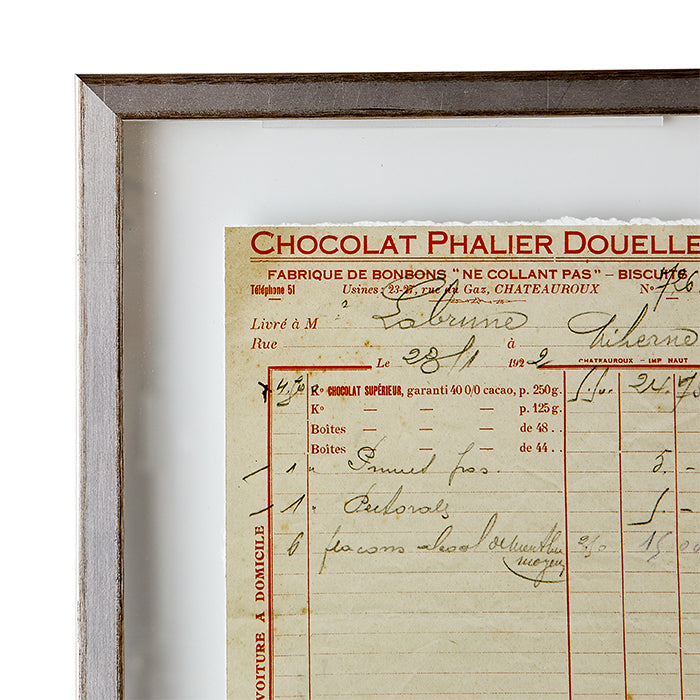 CHOCOLAT PHALIER DOUELLE
FABRIQUE DE BONBONS "NE COLLANT PAS" – BISCUITS
Téléphone 51 Usines: 23-27, rue du Gaz, CHATEAUROUX N° 726
Livré à M Labrune
Rue à
Le 28/1 1929
CHATEAUROUX - IMP HAUT
K° CHOCOLAT SUPÉRIEUR, garanti 40 0/0 cacao, p. 250g.
K° — — — p. 125g.
Boîtes — — — de 48 . .
Boîtes — — — de 44 . .
1 " 5 -
1 " Pectorals
6 flacons alcool de menthe 2,50 15,00
moyen
VOITURE A DOMICILE